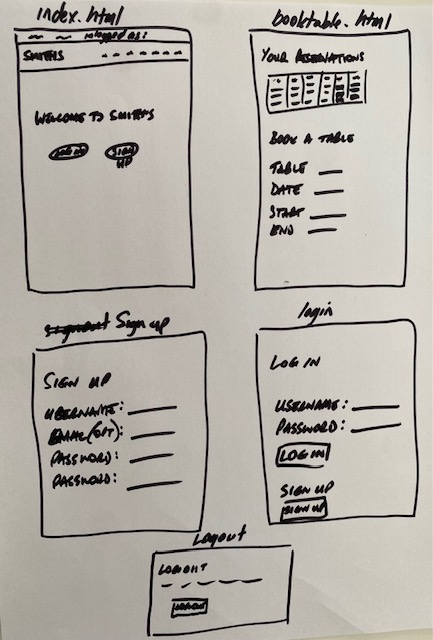 index.html
logged as:
SMITHS
WELCOME TO SMITHS
LOG IN
SIGN UP
booktable.html
YOUR RESERVATIONS
BOOK A TABLE
TABLE
DATE
START
END
Sign up
SIGN UP
USERNAME:
EMAIL (OPT):
PASSWORD:
PASSWORD:
login
LOG IN
USERNAME:
PASSWORD:
LOG IN
SIGN UP
SIGN UP
Logout
LOGOUT
LOGOUT